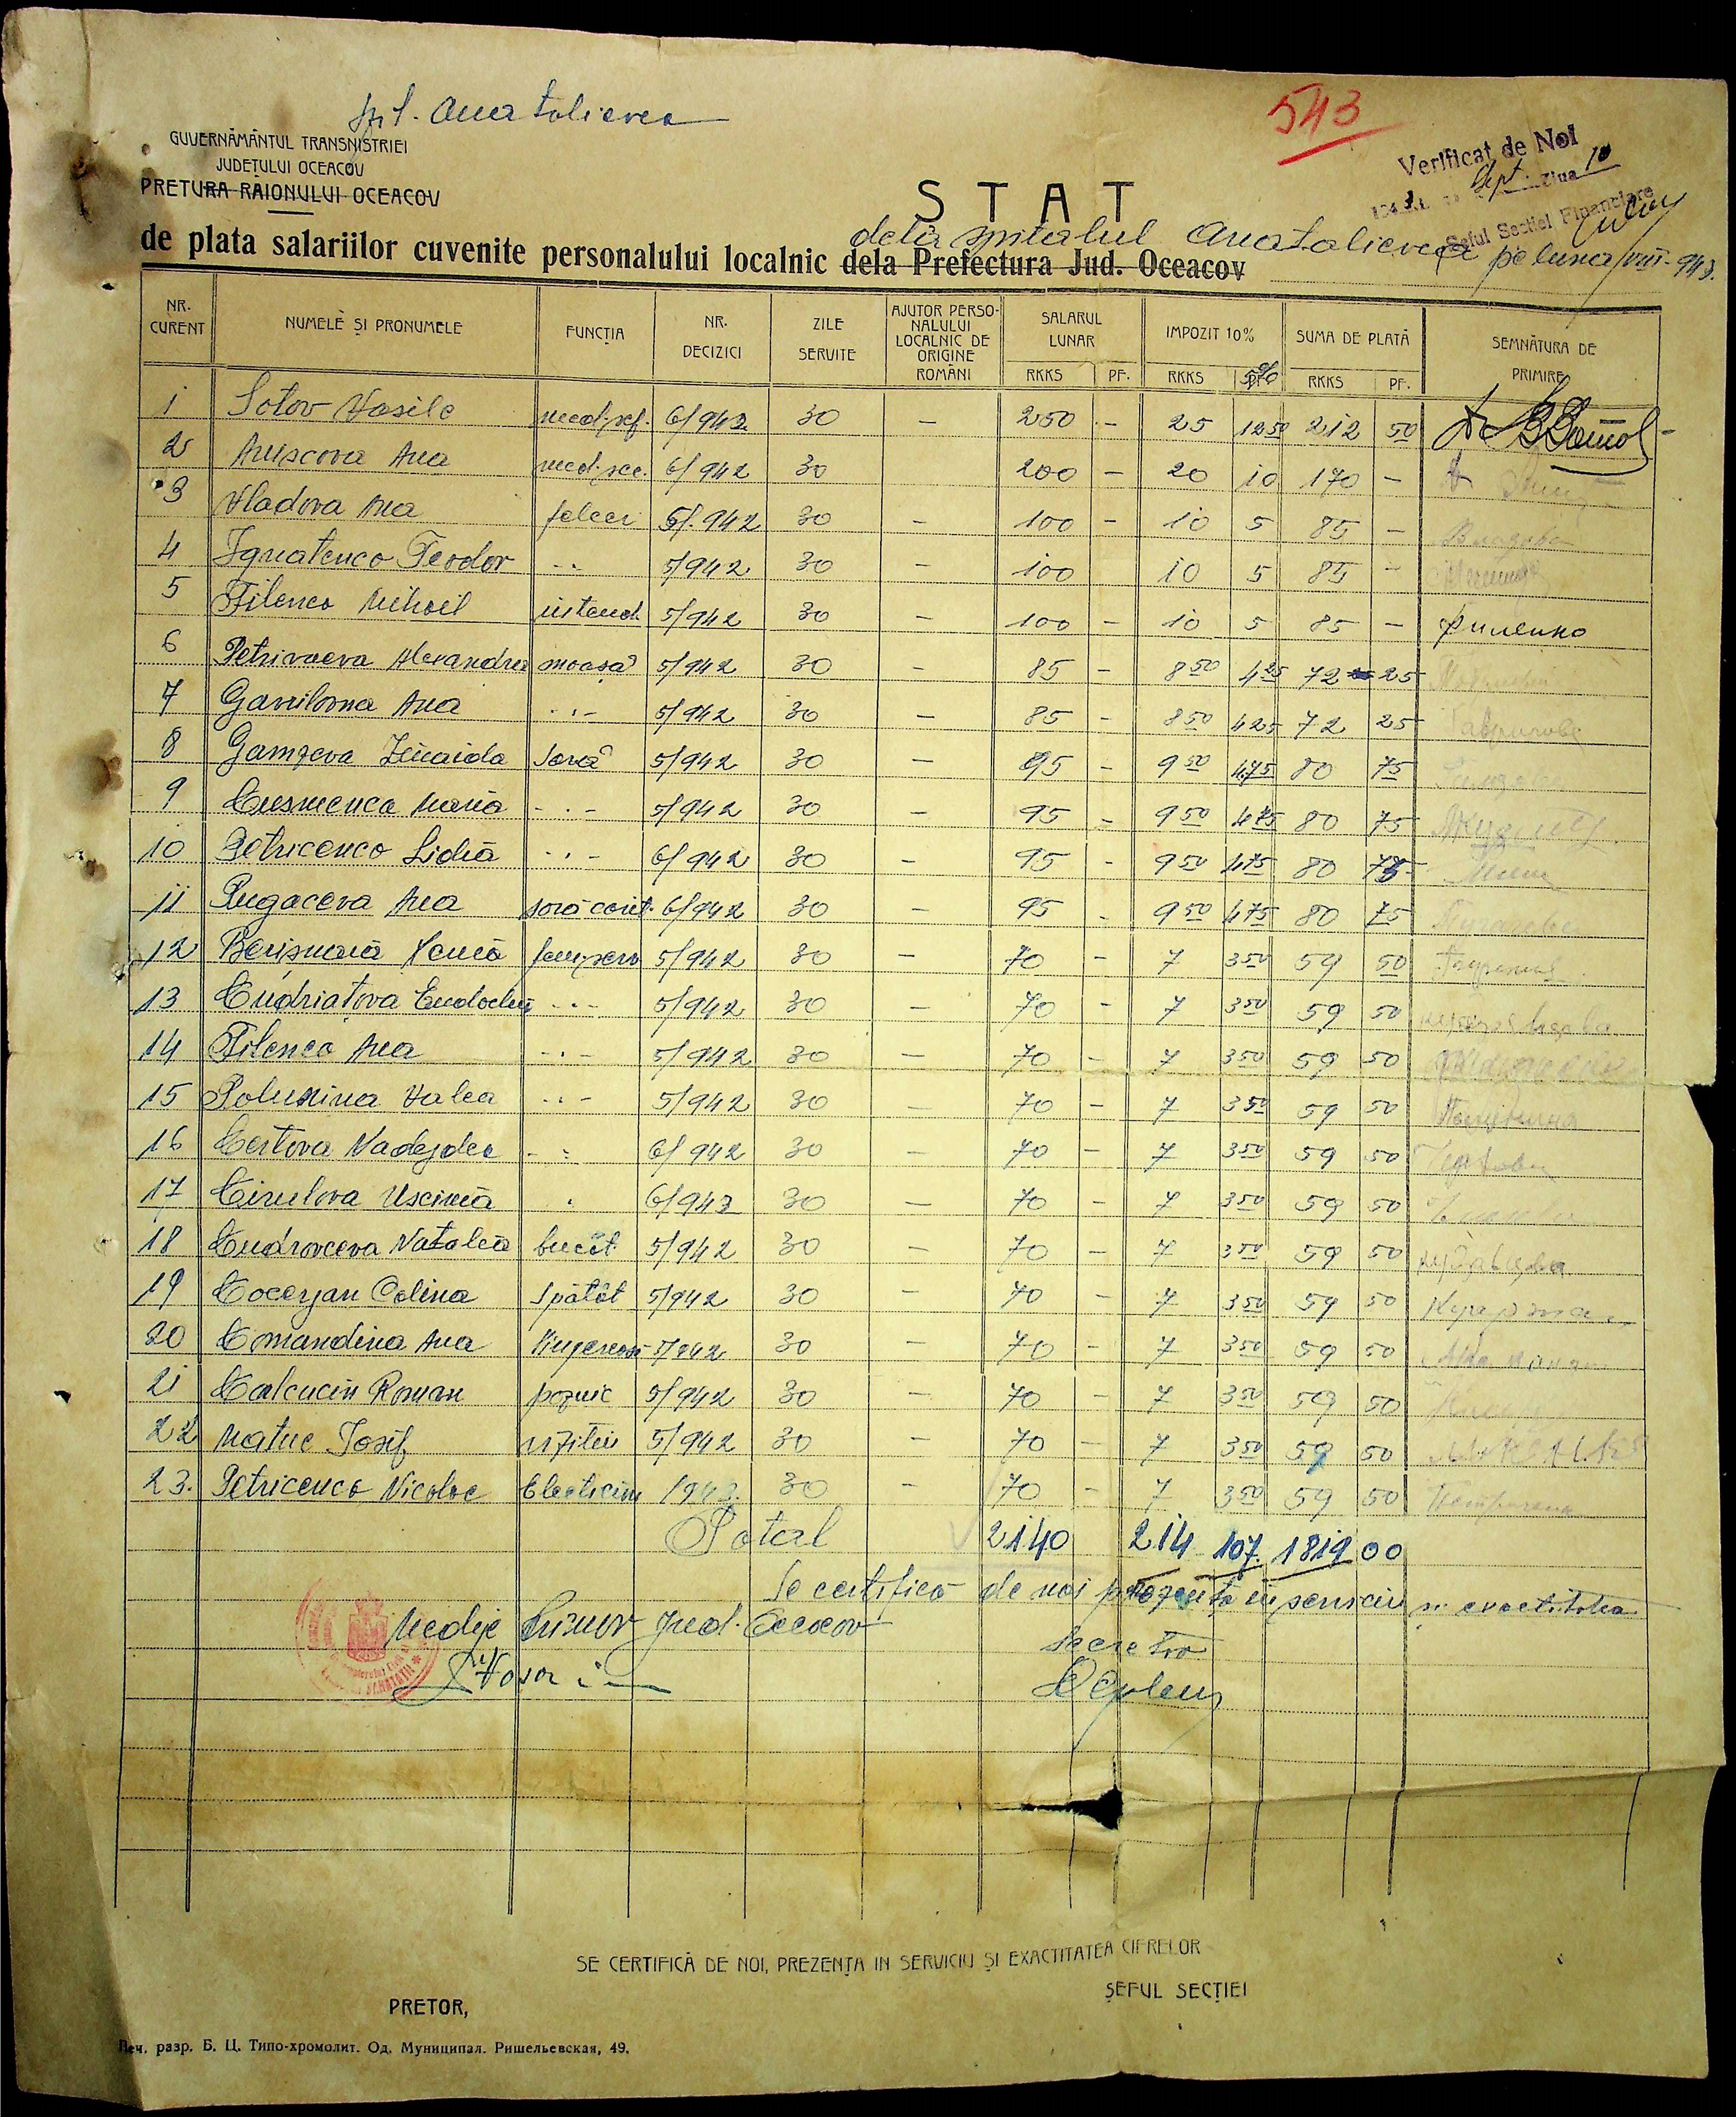 spit. Anatolievca
543
GUVERNĂMÂNTUL TRANSNISTRIEI
JUDEȚULUI OCEACOV
PRETURA RAIONULUI OCEACOV
Verificat de Noi
Sept. Ziua 10
Șeful Secției Financiare
STAT
de plata salariilor cuvenite personalului localnic dela Prefectura Jud. Oceacov dela spitalul Anatolievca pe luna VIII-943.
NR. CURENT NUMELE ȘI PRONUMELE FUNCȚIA NR. DECIZICI ZILE SERVITE AJUTOR PERSONALULUI LOCALNIC DE ORIGINE ROMÂNI SALARUL LUNAR IMPOZIT 10% SUMA DE PLATĂ SEMNĂTURA DE PRIMIRE
RKKS PF. RKKS 5% RKKS PF.
1 Sotov Vasile med.șef. 6/942 30 — 250 - 25 12 50 212 50
2 Aniscova Ana med.sec. 6/942 30 200 - 20 10 170 -
3 Vladova Ana felcer 5/942 30 - 100 - 10 5 85 - Владова
4 Ignatenco Teodor -"- 5/942 30 - 100 10 5 85 -
5 Filenco Mihail intend. 5/942 30 - 100 - 10 5 85 - Филенко
6 Petrivaeva Alexandra moașă 5/942 30 - 85 - 8 50 4 25 72 25
7 Gavrilovna Ana -"- 5/942 30 - 85 - 8 50 4 25 72 25
8 Gamzeva Zinaida soră 5/942 30 - 95 - 9 50 4 75 80 75
9 Cusmenco Maria -"- 5/942 30 - 95 - 9 50 4 75 80 75
10 Petricenco Lidia -"- 6/942 30 - 95 - 9 50 4 75 80 75
11 Pugaceva Ana soră 6/942 30 - 95 - 9 50 4 75 80 75
12 fem.serv 5/942 30 - 70 - 7 3 50 59 50
13 Cudriațova Eudochia -"- 5/942 30 - 70 - 7 3 50 59 50
14 Filenco Ana -"- 5/942 30 - 70 - 7 3 50 59 50
15 Polunina Valea -"- 5/942 30 - 70 - 7 3 50 59 50
16 Certova Nadejdea -"- 6/942 30 - 70 - 7 3 50 59 50
17 Cirulova 6/943 30 - 70 - 7 3 50 59 50
18 Cudrovceva Natalia bucăt. 5/942 30 - 70 - 7 3 50 59 50
19 Cocerjan Colina spălăt 5/942 30 - 70 - 7 3 50 59 50
20 Comandina Ana 5/942 30 - 70 - 7 3 50 59 50
21 Calcucin Roman paznic 5/942 30 - 70 - 7 3 50 59 50
22 Matuc Iosif vizitiu 5/942 30 - 70 - 7 3 50 59 50
23. Petricenco Nicolae Electician /943 30 - 70 - 7 3 50 59 50
Total 2140 214 107. 1819 00
Se certifică de noi prezența in serviciu și exactitatea
Medic Primar Jud. Oceacov
Secretar
SE CERTIFICĂ DE NOI, PREZENȚA IN SERVICIU ȘI EXACTITATEA CIFRELOR
ȘEFUL SECȚIEI
PRETOR,
Печ. разр. Б. Ц. Типо-хромолит. Од. Муниципал. Ришельевская, 49.